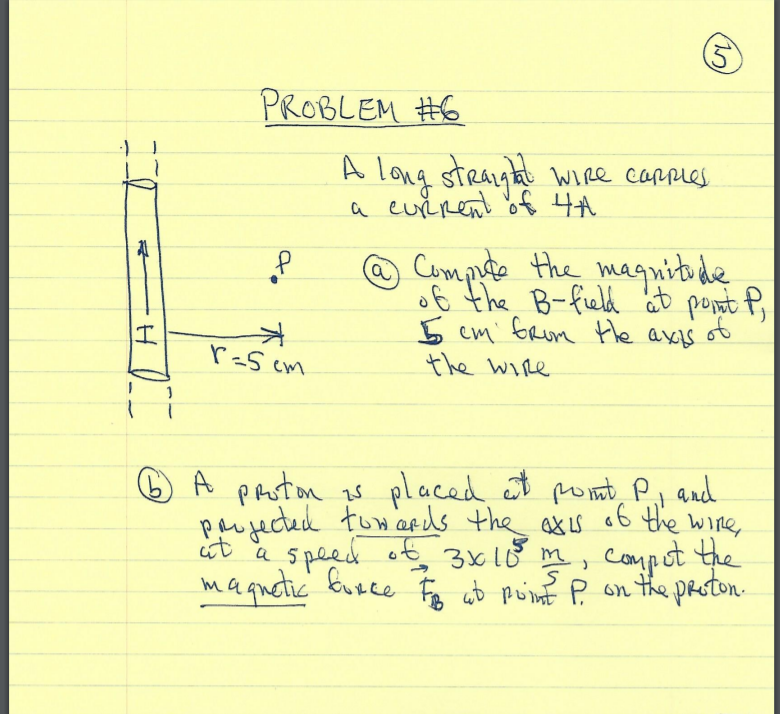 5
PROBLEM #6
A long straight wire carries
a current of 4A
P
(a) Compute the magnitude
of the B-field at point P,
5 cm from the axis of
the wire
I
r=5 cm
(b) A proton is placed at point P, and
projected towards the axis of the wire,
at a speed of 3x10⁵ m/s, comput the
magnetic force F⃗_B at point P. on the proton.